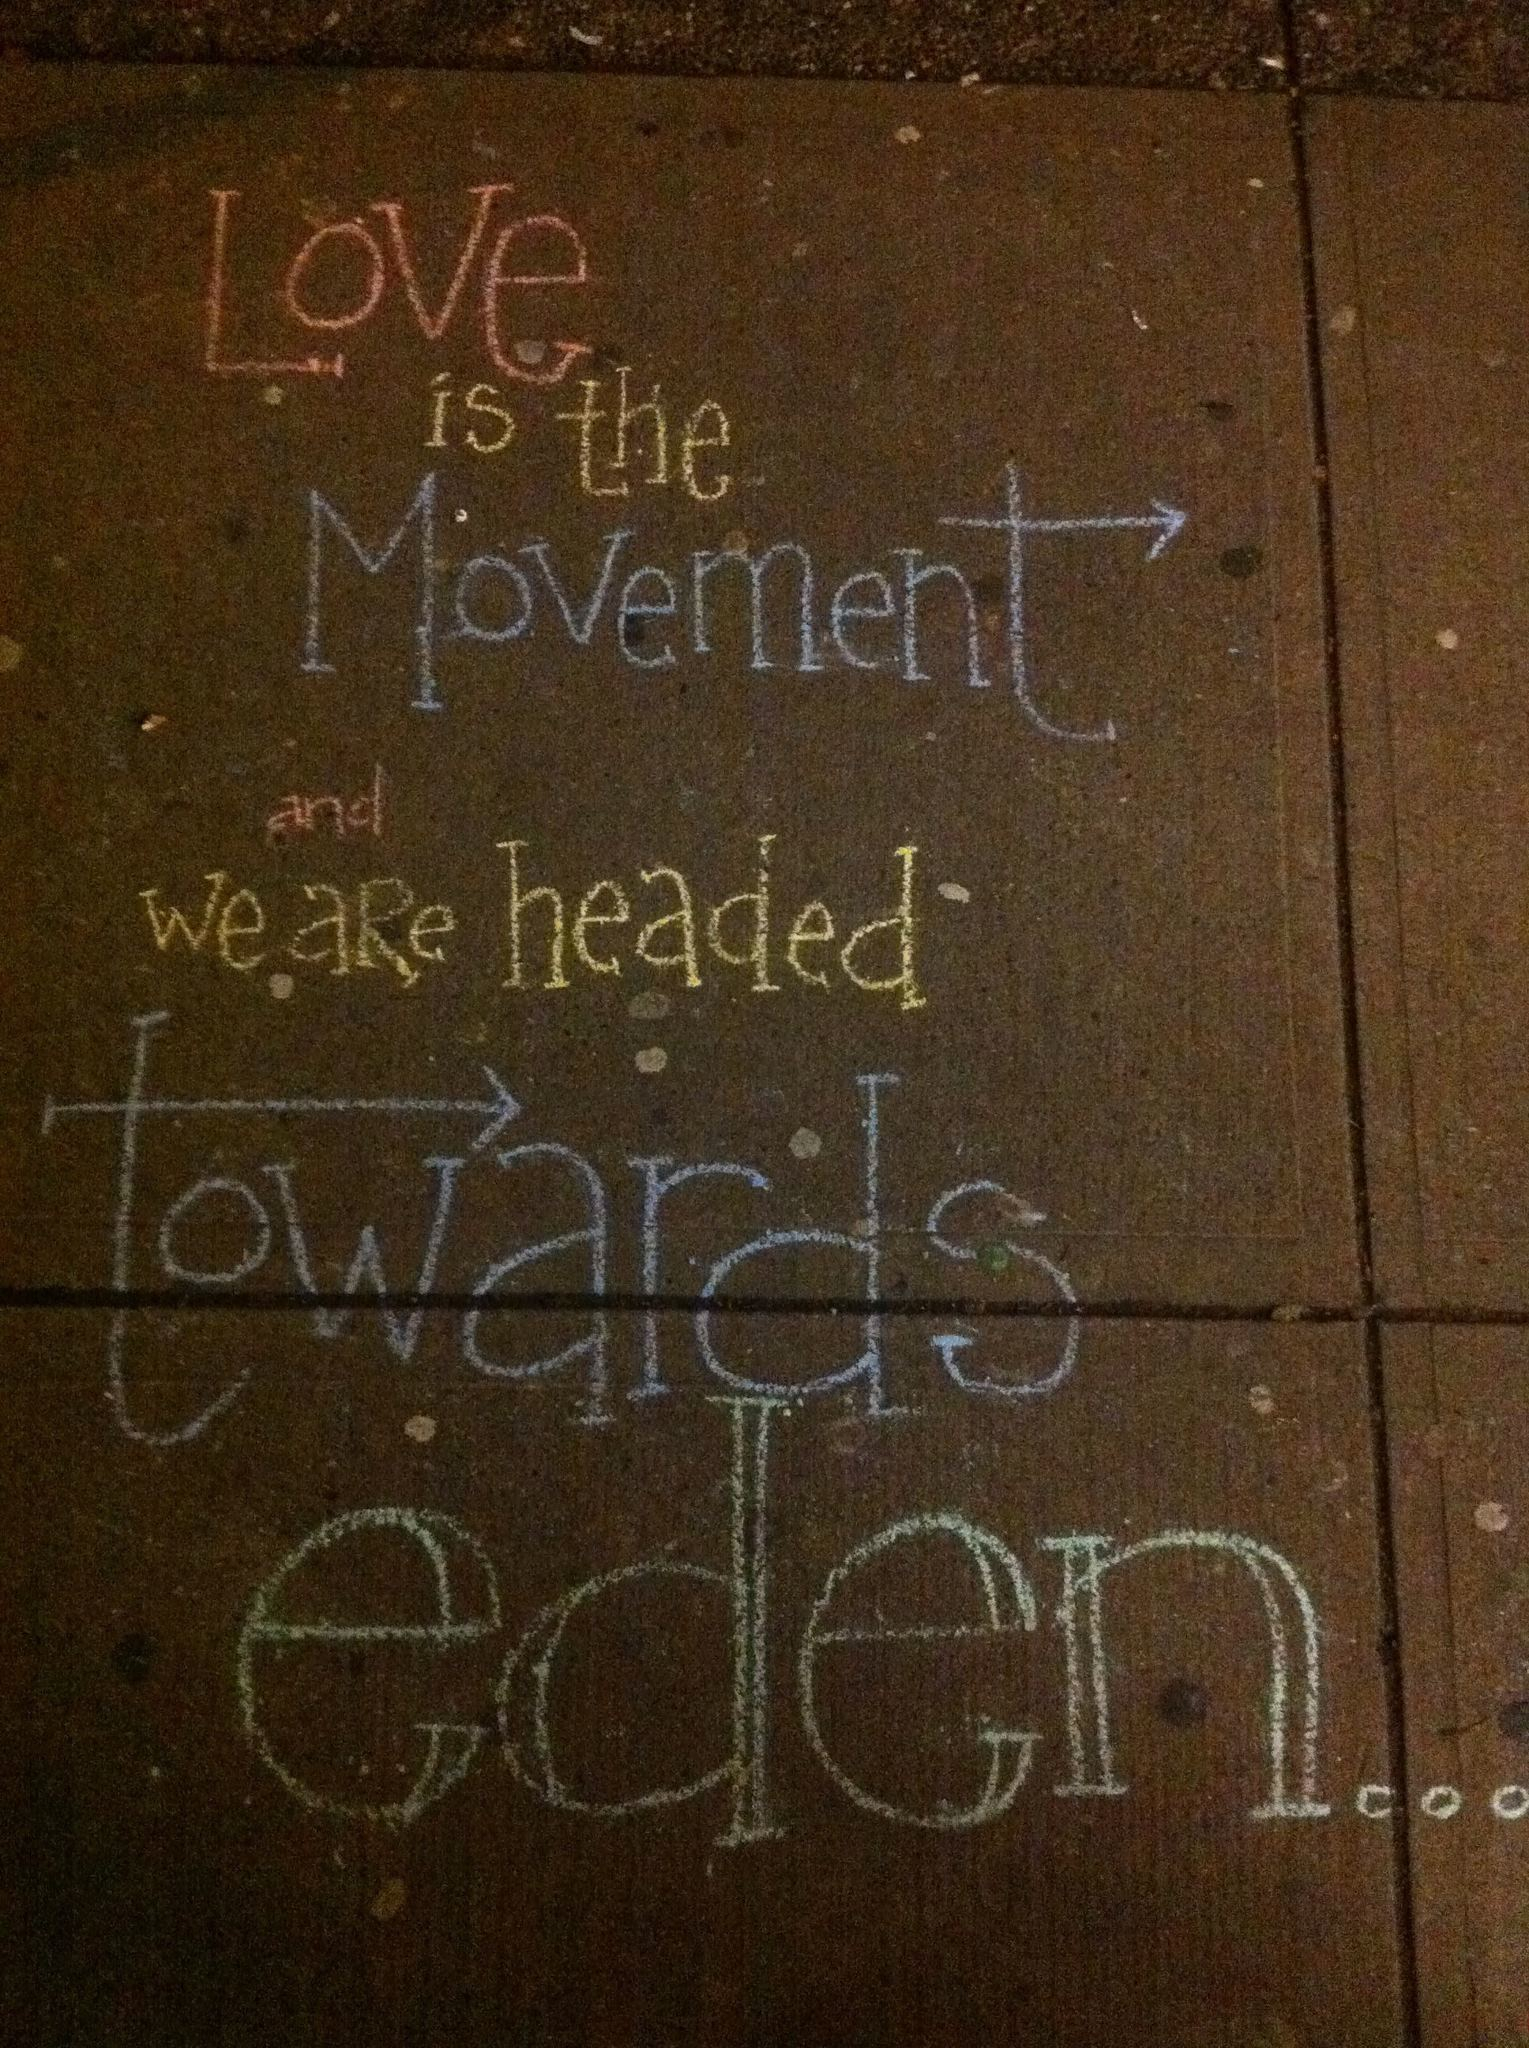 Love
is the
Movement
and
we aRe headed
towards
eden...